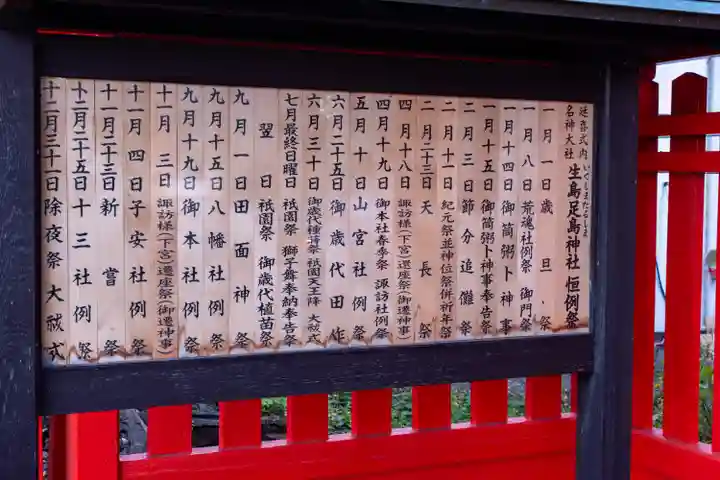 延喜式内
名神大社
いくしまたるしま
生島足島神社 恒例祭
一月一日歳旦祭
一月八日荒魂社例祭 御門祭
一月十四日御筒粥卜神事
一月十五日御筒粥卜神事奉告祭
二月三日節分追儺祭
二月十一日紀元祭並神位祭併祈年祭
二月二十三日天長祭
四月十八日諏訪様(下宮)還座祭(御還神事)
四月十九日御本社春季祭 諏訪社例祭
五月十日山宮社例祭
六月二十五日御歳代田作
六月三十日御歳代種蒔祭 祇園天王降 大祓式
七月最終日曜日祇園祭 獅子舞奉納奉告祭
翌日祇園祭 御歳代植苗祭
九月一日田面神祭
九月十五日八幡社例祭
九月十九日御本社例祭
十一月三日諏訪様(下宮)遷座祭(御遷神事)
十一月四日子安社例祭
十一月二十三日新嘗祭
十二月二十五日十三社例祭
十二月三十一日除夜祭大祓式